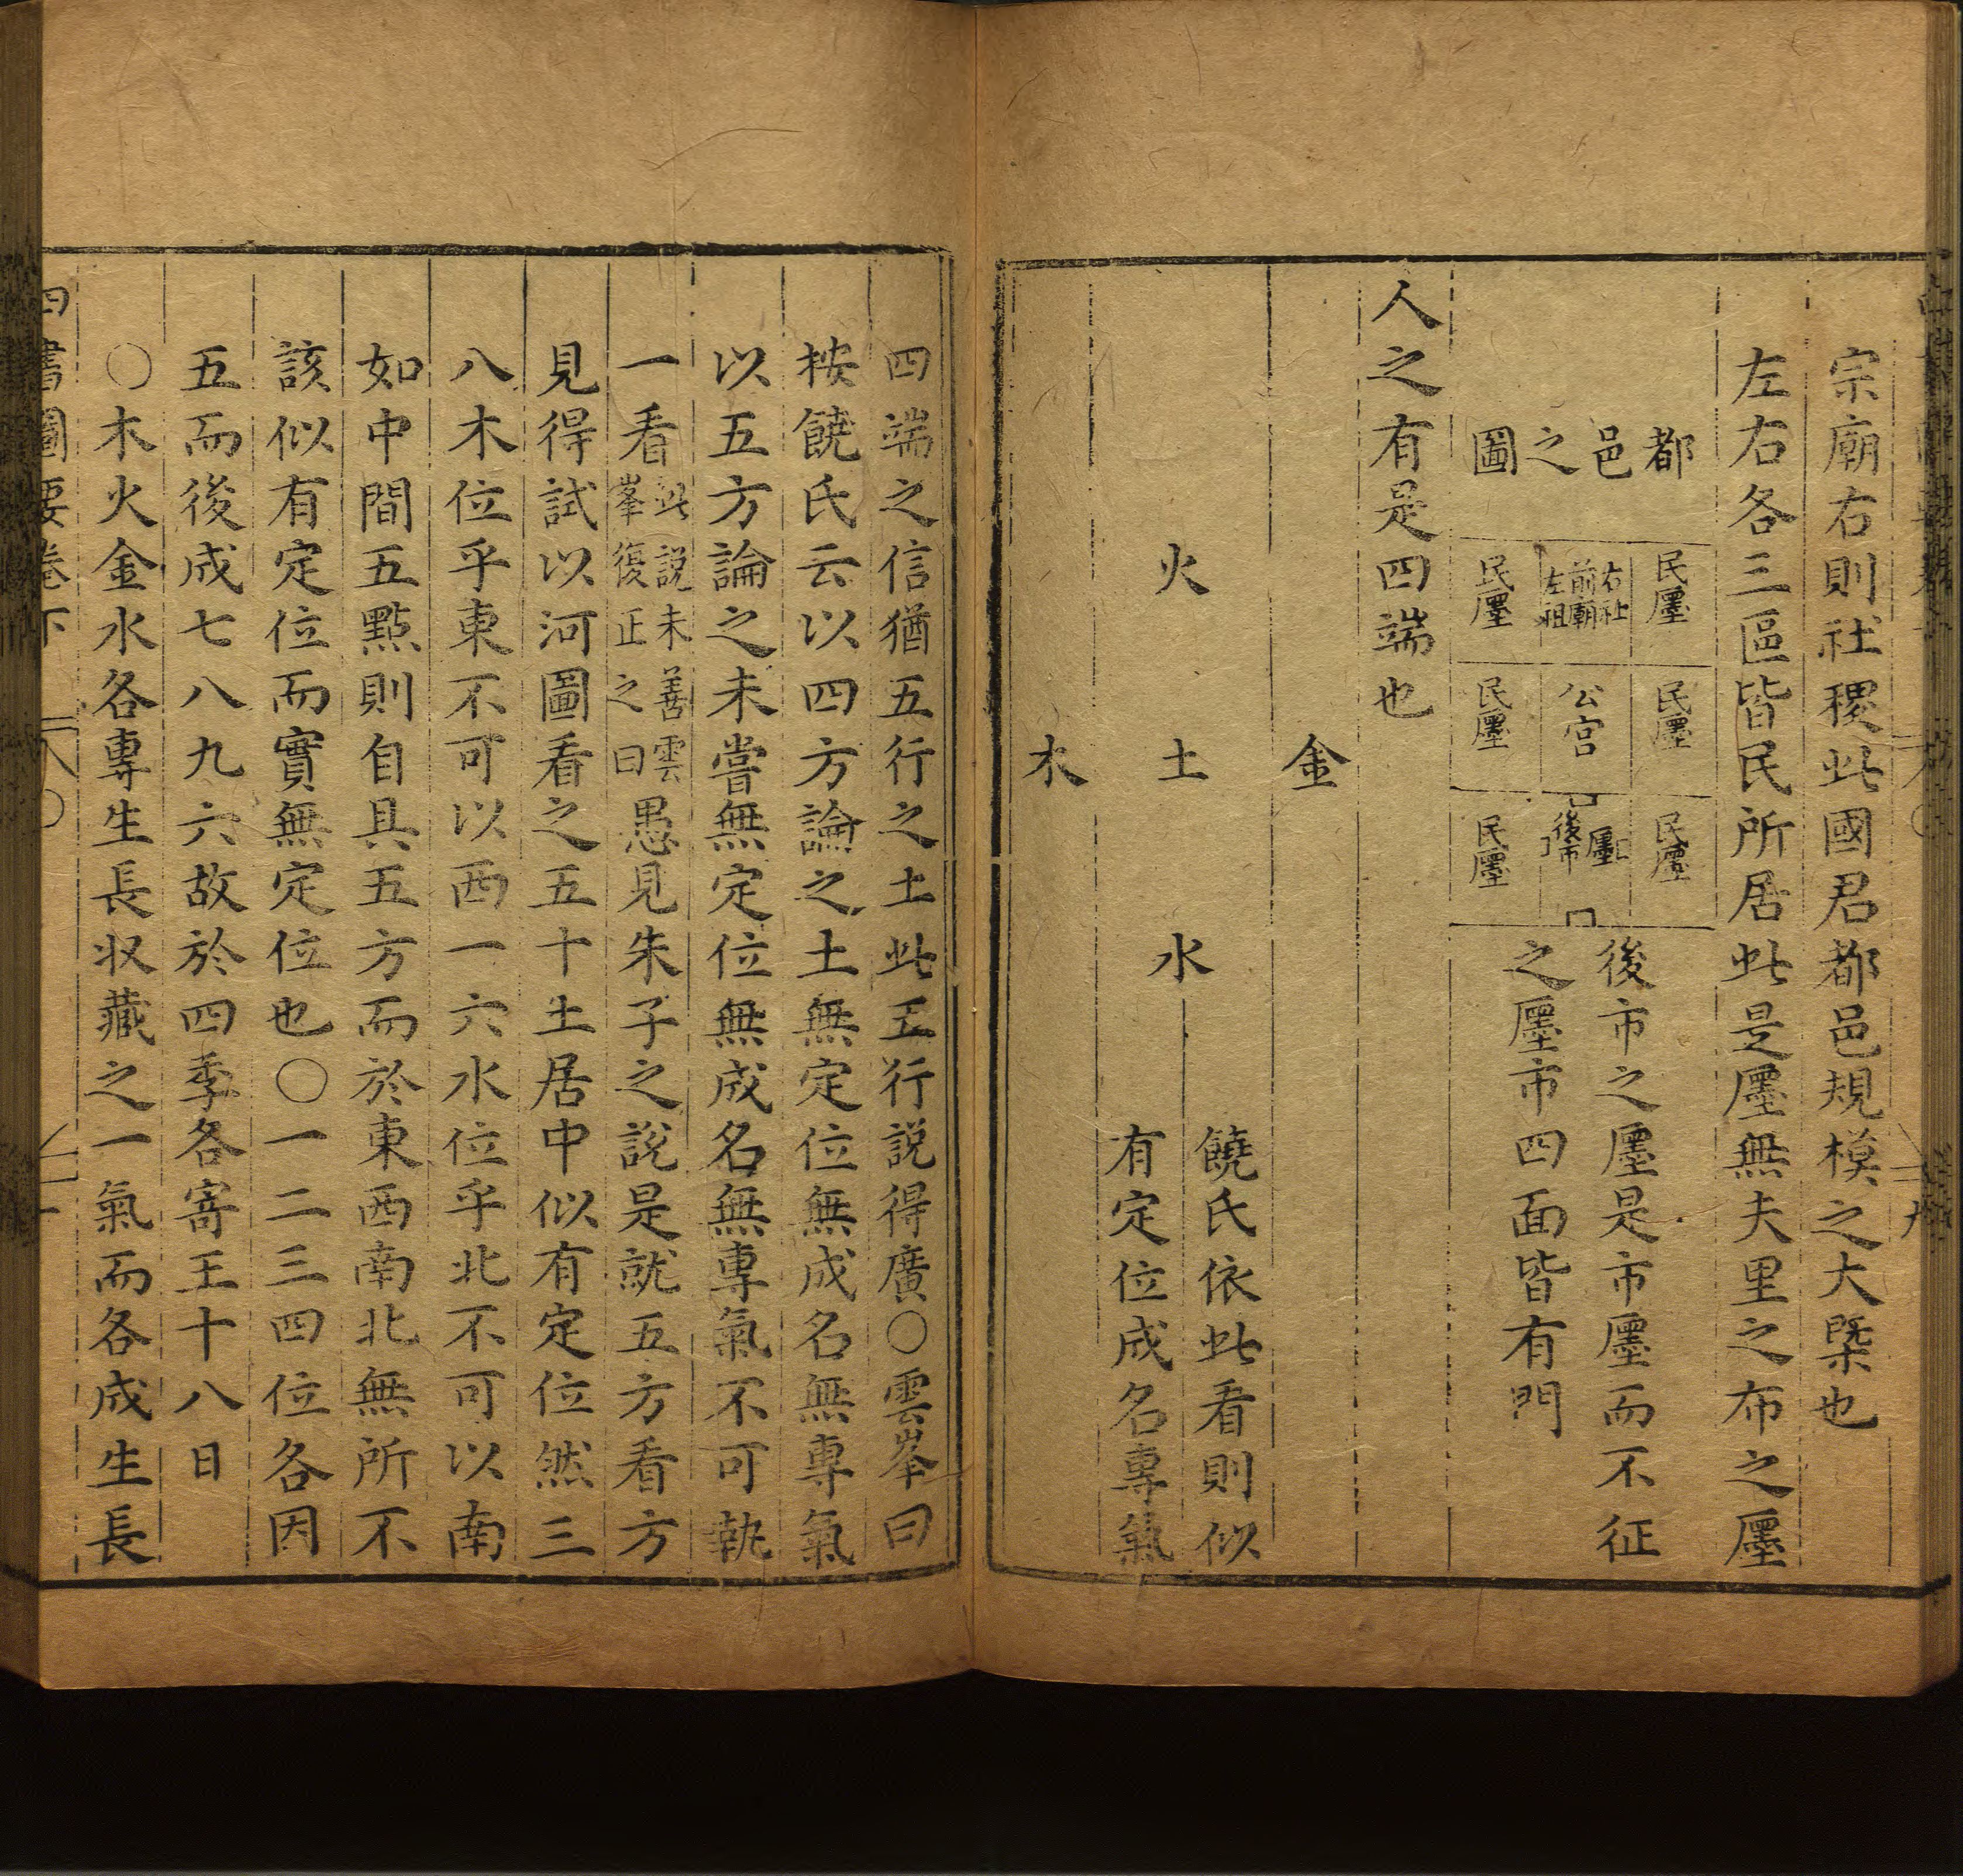 宗廟右則社稷此國君都邑規模之大槩也
左右各三區皆民所居此是廛無夫里之布之廛
都邑之圖
民廛
右社
前廟
左祖
民廛
民廛
公宮
民廛
民廛
廛
後市
民廛
後市之廛是市廛而不征
之廛市四面皆有門
人之有是四端也
金
火
土
水
木
饒氏依此看則似
有定位成名專氣
四端之信猶五行之土此五行説得廣○雲峯曰
按饒氏云以四方論之土無定位無成名無專氣
以五方論之未嘗無定位無成名無專氣不可執
一看此説未善雲峯復正之曰愚見朱子之説是就五方看方
見得試以河圖看之五十土居中似有定位然三
八木位乎東不可以西一六水位乎北不可以南
如中間五點則自具五方而於東西南北無所不
該似有定位而實無定位也○一二三四位各因
五而後成七八九六故於四季各寄王十八日
○木火金水各專生長収藏之一氣而各成生長
四書圖要卷下